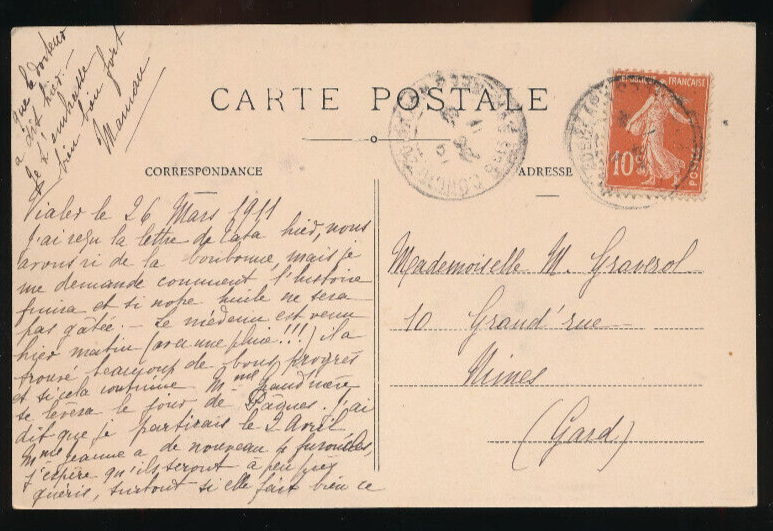 CARTE POSTALE
CORRESPONDANCE
ADRESSE
Vialer le 26 Mars 1911
J'ai reçu la lettre de Tata hier, nous
avons ri de la bonbonne, mais je
me demande comment l'histoire
finira et si nope huile ne sera
pas gâtée. — Le médecin est venu
hier matin (avec une pluie!!!) il a
trouvé beaucoup de bons progrès
et si cela continue Mme
se lèvera le jour de Pâques. J'ai
dit que je partirais le 2 Avril
Mme Jeanne a de nouveau furoncles,
j'espère qu'ils seront à peu près
guéris, surtout si elle fait bien ce
que le docteur
a dit hier. —
Je t'embrasse
bien bien fort
Maman
Mademoiselle M. Graverol
10 Grand'rue
Nimes
(Gard)
FRANÇAISE
10
POSTES